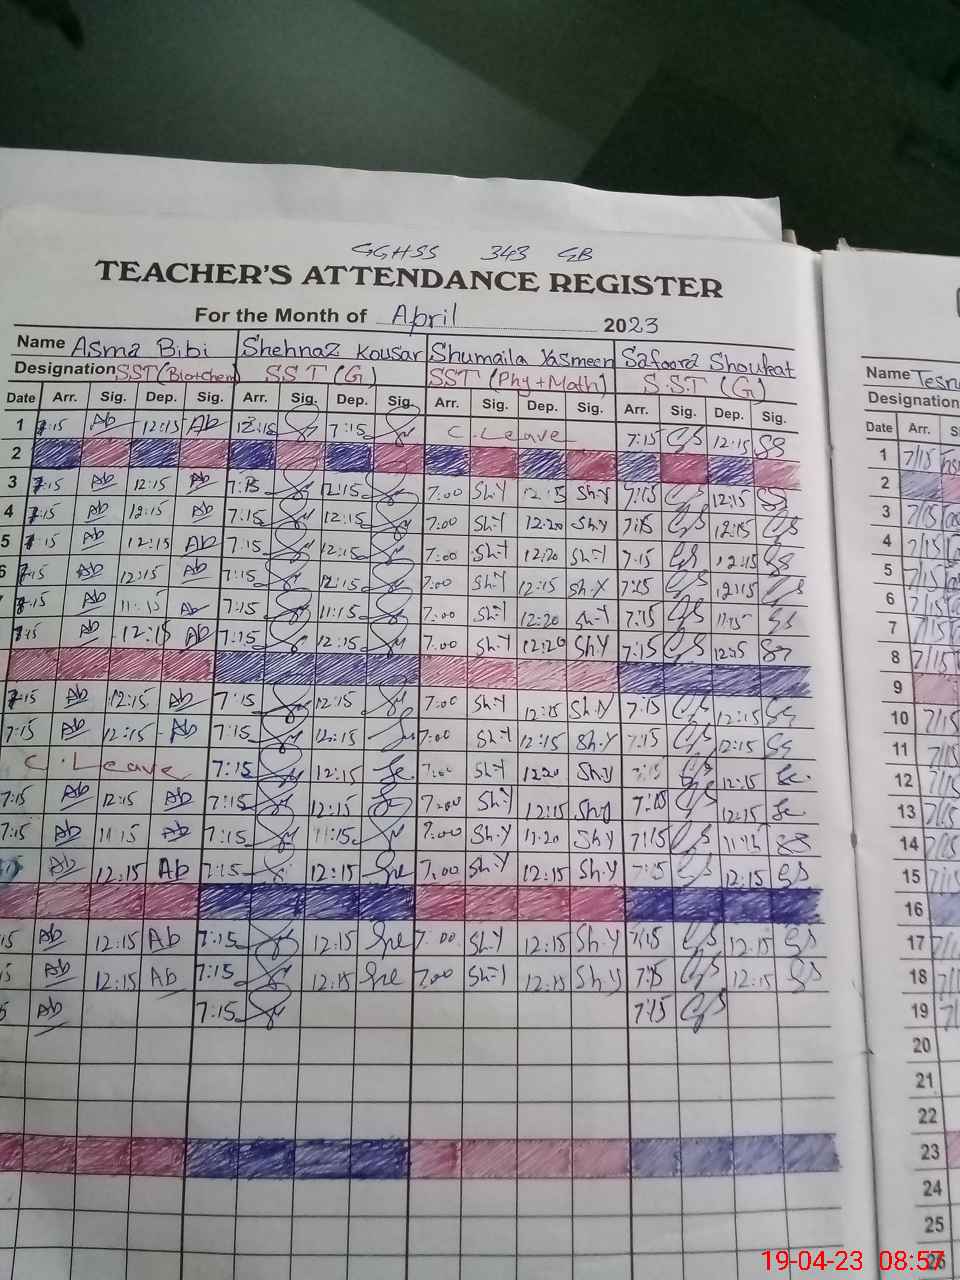 GGHSS 343 GB
TEACHER'S ATTENDANCE REGISTER
For the Month of April 2023
Name Asma Bibi Shehnaz Kousar Shumaila Yasmeen Safoora Shoukat
Designation SST (Bio+chem) SST (G) SST (Phy+Math) S.ST (G)
Date Arr. Sig. Dep. Sig. Arr. Sig. Dep. Sig. Arr. Sig. Dep. Sig. Arr. Sig. Dep. Sig.
1 7:15 Ab 12:15 Ab 12:15 7:15 C. Leave 7:15 12:15 SS
2
3 7:15 Ab 12:15 Ab 7:15 12:15 7:00 Sh.Y 12:15 Sh.Y 7:15 12:15 SS
4 7:15 Ab 12:15 Ab 7:15 12:15 7:00 Sh.Y 12:20 Sh.Y 7:15 12:15
5 7:15 Ab 12:15 Ab 7:15 12:15 7:00 Sh.Y 12:20 Sh.Y 7:15 12:15 SS
6 7:15 Ab 12:15 Ab 7:15 12:15 7:00 Sh.Y 12:15 Sh.Y 7:15 12:15
7:15 Ab 11:15 Ab 7:15 11:15 7:00 Sh.Y 12:20 Sh.Y 7:15 11:15 SS
7:15 Ab 12:15 Ab 7:15 12:15 7:00 Sh.Y 12:20 Sh.Y 7:15 12:15
7:15 Ab 12:15 Ab 7:15 12:15 7:00 Sh.Y 12:15 Sh.Y 7:15 12:15 SS
7:15 Ab 12:15 Ab 7:15 12:15 7:00 Sh.Y 12:15 Sh.Y 7:15 12:15 SS
C. Leave 7:15 12:15 7:00 Sh.Y 12:20 Sh.Y 7:15 12:15
7:15 Ab 12:15 Ab 7:15 12:15 7:00 Sh.Y 12:15 Sh.Y 7:15 12:15
7:15 Ab 11:15 Ab 7:15 11:15 7:00 Sh.Y 11:20 Sh.Y 7:15 11:15 SS
Ab 12:15 Ab 7:15 12:15 7:00 Sh.Y 12:15 Sh.Y 7:15 12:15 SS
15 Ab 12:15 Ab 7:15 12:15 7:00 Sh.Y 12:15 Sh.Y 7:15 12:15 SS
5 Ab 12:15 Ab 7:15 12:15 7:00 Sh.Y 12:15 Sh.Y 7:15 12:15 SS
5 Ab 7:15 7:15
Name
Designation
Date Arr. S
1 7/15
2
3 7/15
4 7/15
5 7/15
6 7/15
7 7/15
8 7/15
9
10 7/15
11 7/15
12 7/15
13 7/15
14 7/15
15 7/15
16
17
18
19
20
21
22
23
24
25
26
19-04-23 08:57